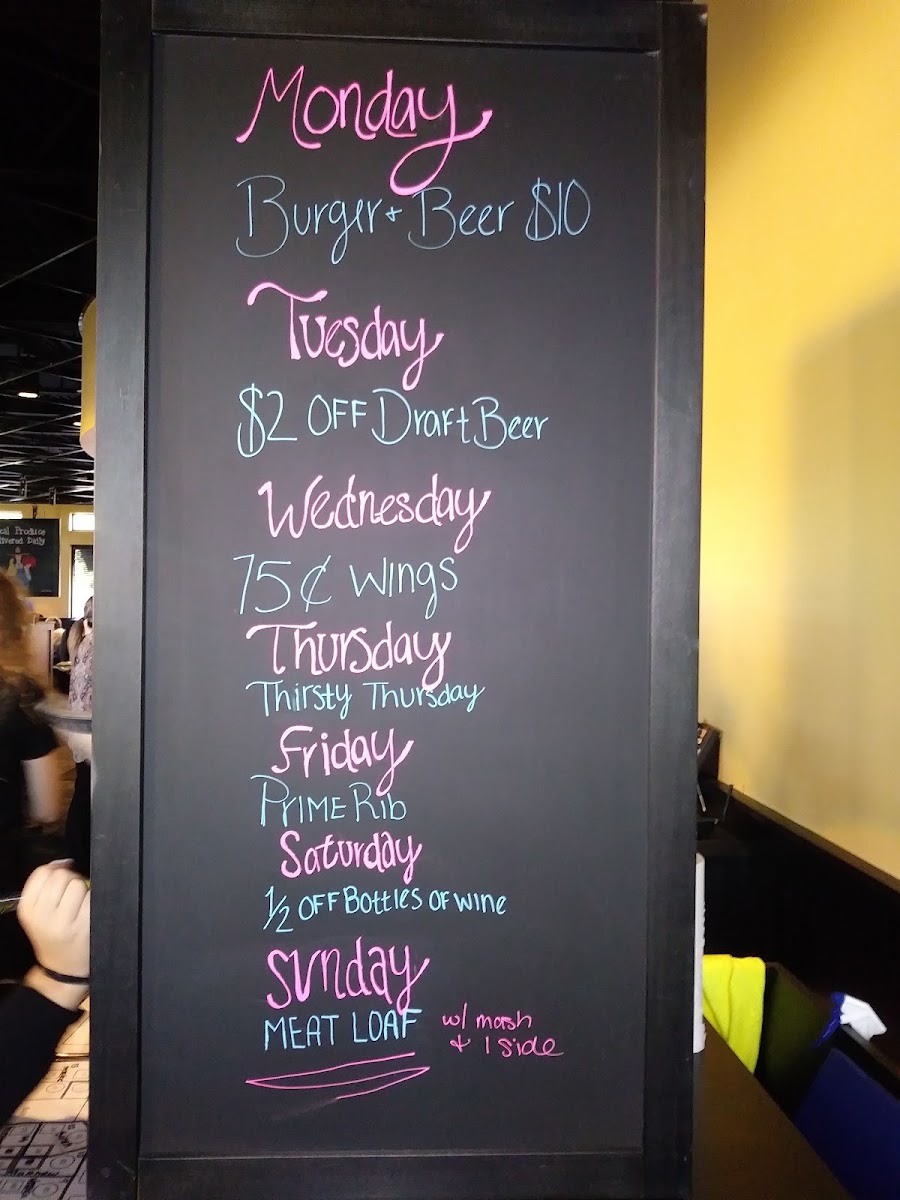 Monday
Burger + Beer $10
Tuesday
$2 OFF Draft Beer
Wednesday
75¢ Wings
Thursday
Thirsty Thursday
Friday
PRIME Rib
Saturday
1/2 OFF Bottles OF Wine
Sunday
MEAT LOAF w/ mash
+ 1 side
cal Produce
livered Daily